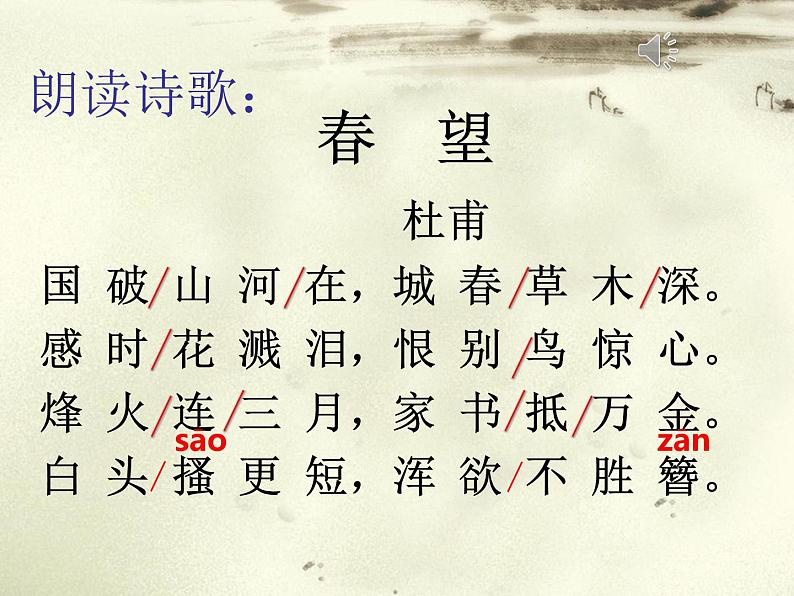 朗读诗歌：
春 望
杜甫
国 破/山 河/在，城 春/草 木/深。
感 时/花 溅 泪，恨 别/鸟 惊 心。
烽 火/连/三 月，家 书/抵/万 金。
sāo zān
白 头/搔 更 短，浑 欲/不 胜 簪。